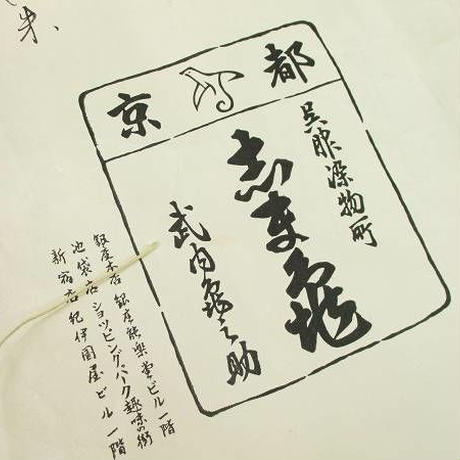 京都
呉服染物町
志ま亀
武内亀之助
銀座本店 銀座能楽堂ビル一階
池袋店 ショッピング・パーク趣味の街
新宿店 紀伊國屋ビル一階